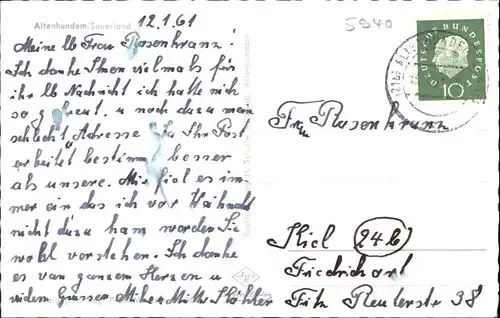 Altenhundem/Sauerland
12.1.61
5940
Meine lb Frau Rosenkranz!
Ich danke Ihnen vielmals für
ihr lb Nachricht ich hatte mich
so gefreut. u noch dazu mein
schlecht Adresse Ja Ihr Post
erbeitet bestimm besser
als unsere. Mir fiel es im-
mer ein das ich vor Weihnach
nicht dazu kam werden Sie
wohl verstehen. Ich danke
es von ganzem Herzen u
vielen Grüsser
DEUTSCHE BUNDESPOST
10
Frau Rosenkranz
Kiel (24b)
Friedrichsort
Fritz Reuterstr 38